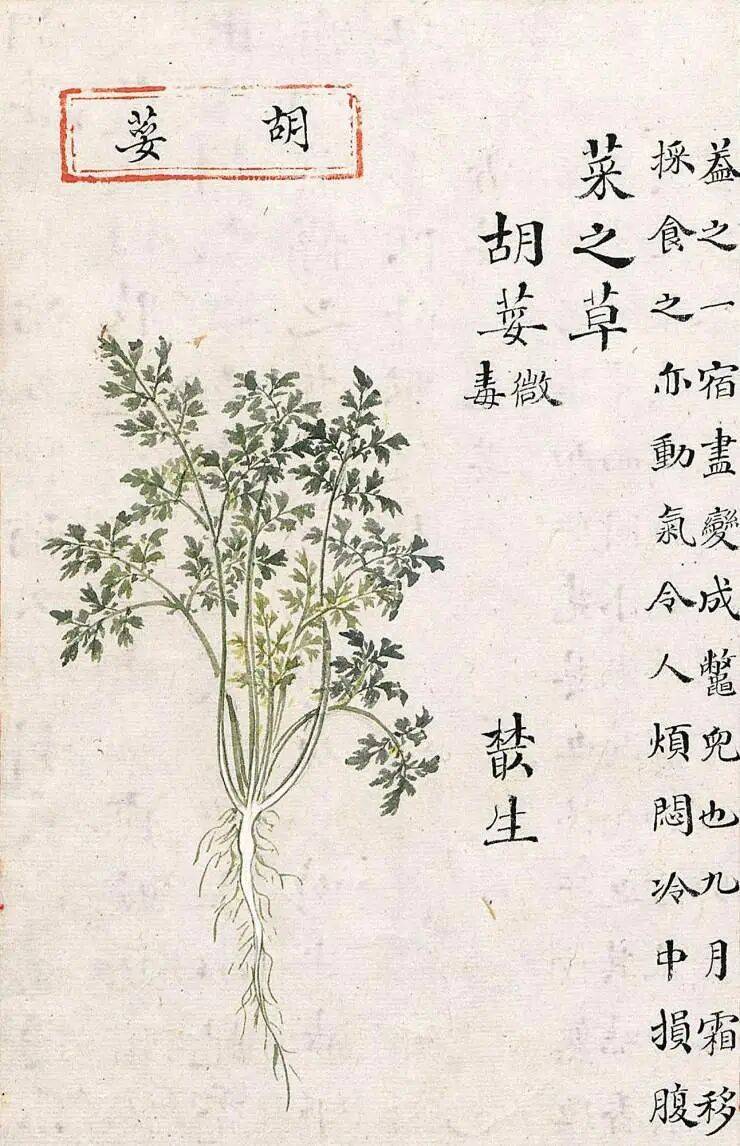 蓋之一宿盡變成鼈兒也九月霜移
採食之亦動氣令人煩悶冷中損腹
菜之草
胡荽 微毒 叢生
胡荽